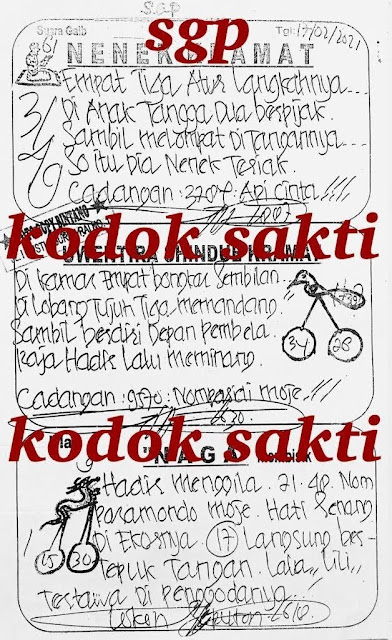 SGP
sgp
Suara Gaib
Tgl: 17/02/2021
NENEK KRAMAT
Empat Tiga Atur Langkahnya...
Di Anak Tangga Dua berpijak.
Sambil melompat Di Tangannya...
So itu Dia Nenek Teriak.
Cadangan: 3204. Api Cinta!!!!
kodok sakti
Di kamar Empat bongkar Sembilan.
Di Lobang Tujuh Tiga memandang.
Sambil berdiri Depan Jendela.
Raja Hadir Lalu meminang.
34
28
Cadangan: 9570.
kodok sakti
"NAGA
Hadir menggila. 21.40. Nom
pasamondo moje. Hati Senang
Di Ekornya (17) Langsung ber-
Tepuk Tangan. Lala,, Lili,,
Tertawa Di penggodanya...
15
30